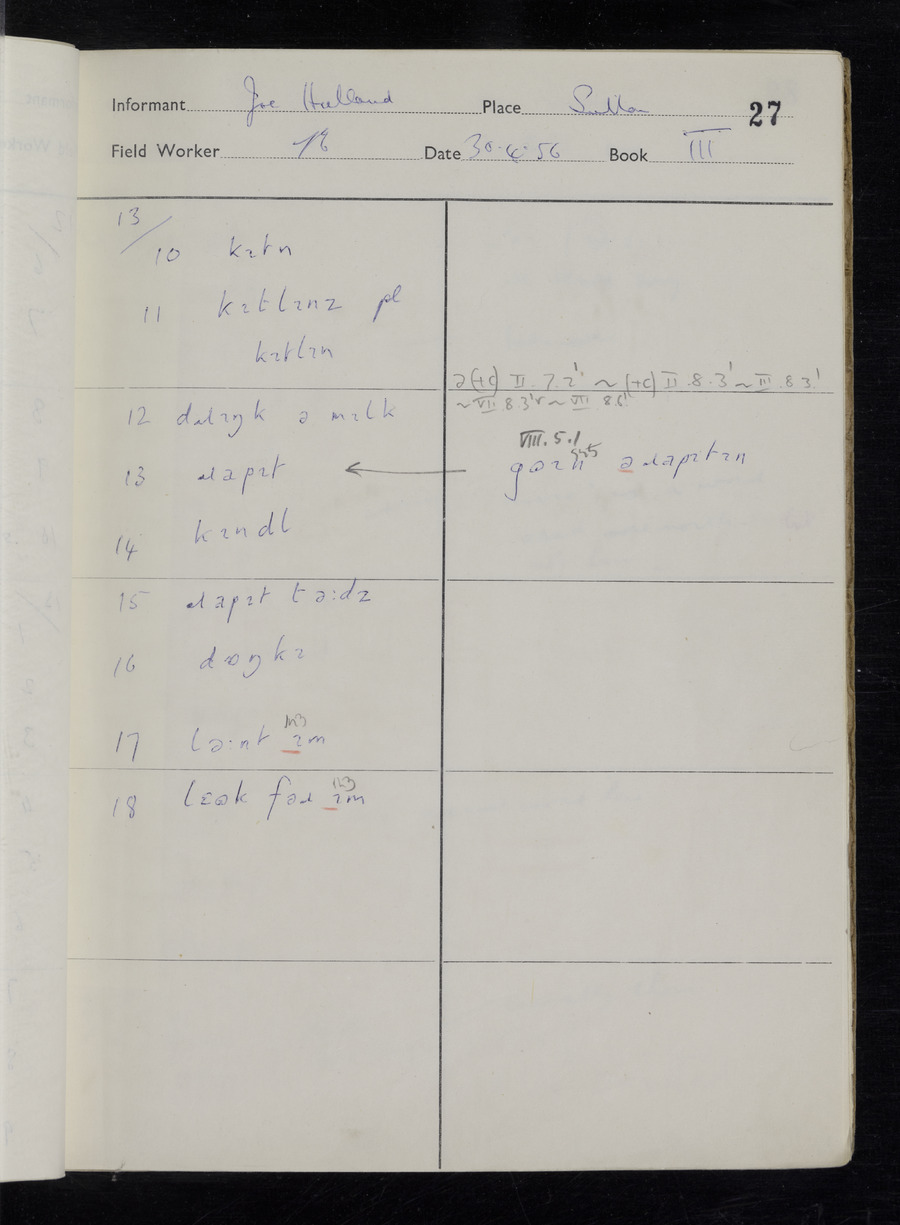 Informant Joe Holland Place Sutton 27
Field Worker Date 30.4.56 Book III
13/
10 kɪtn
11 kɪtlɪnz pl
kɪtlɪn
ə(+c) II.7.2' ~ (+c) II.8.3' ~ III.8.3'
~ VII.8.3' ~ VII.8.6'
12 dɹɪŋk ə mɪlk
VIII.5.1
13 ɹapɪt ← ə ɹapɪtɪn
14 kandl
15 ɹapɪt tə:dz
16 dɒŋkɪ
17 lə:nt ɪm
18 lɛək fəɹ ɪm